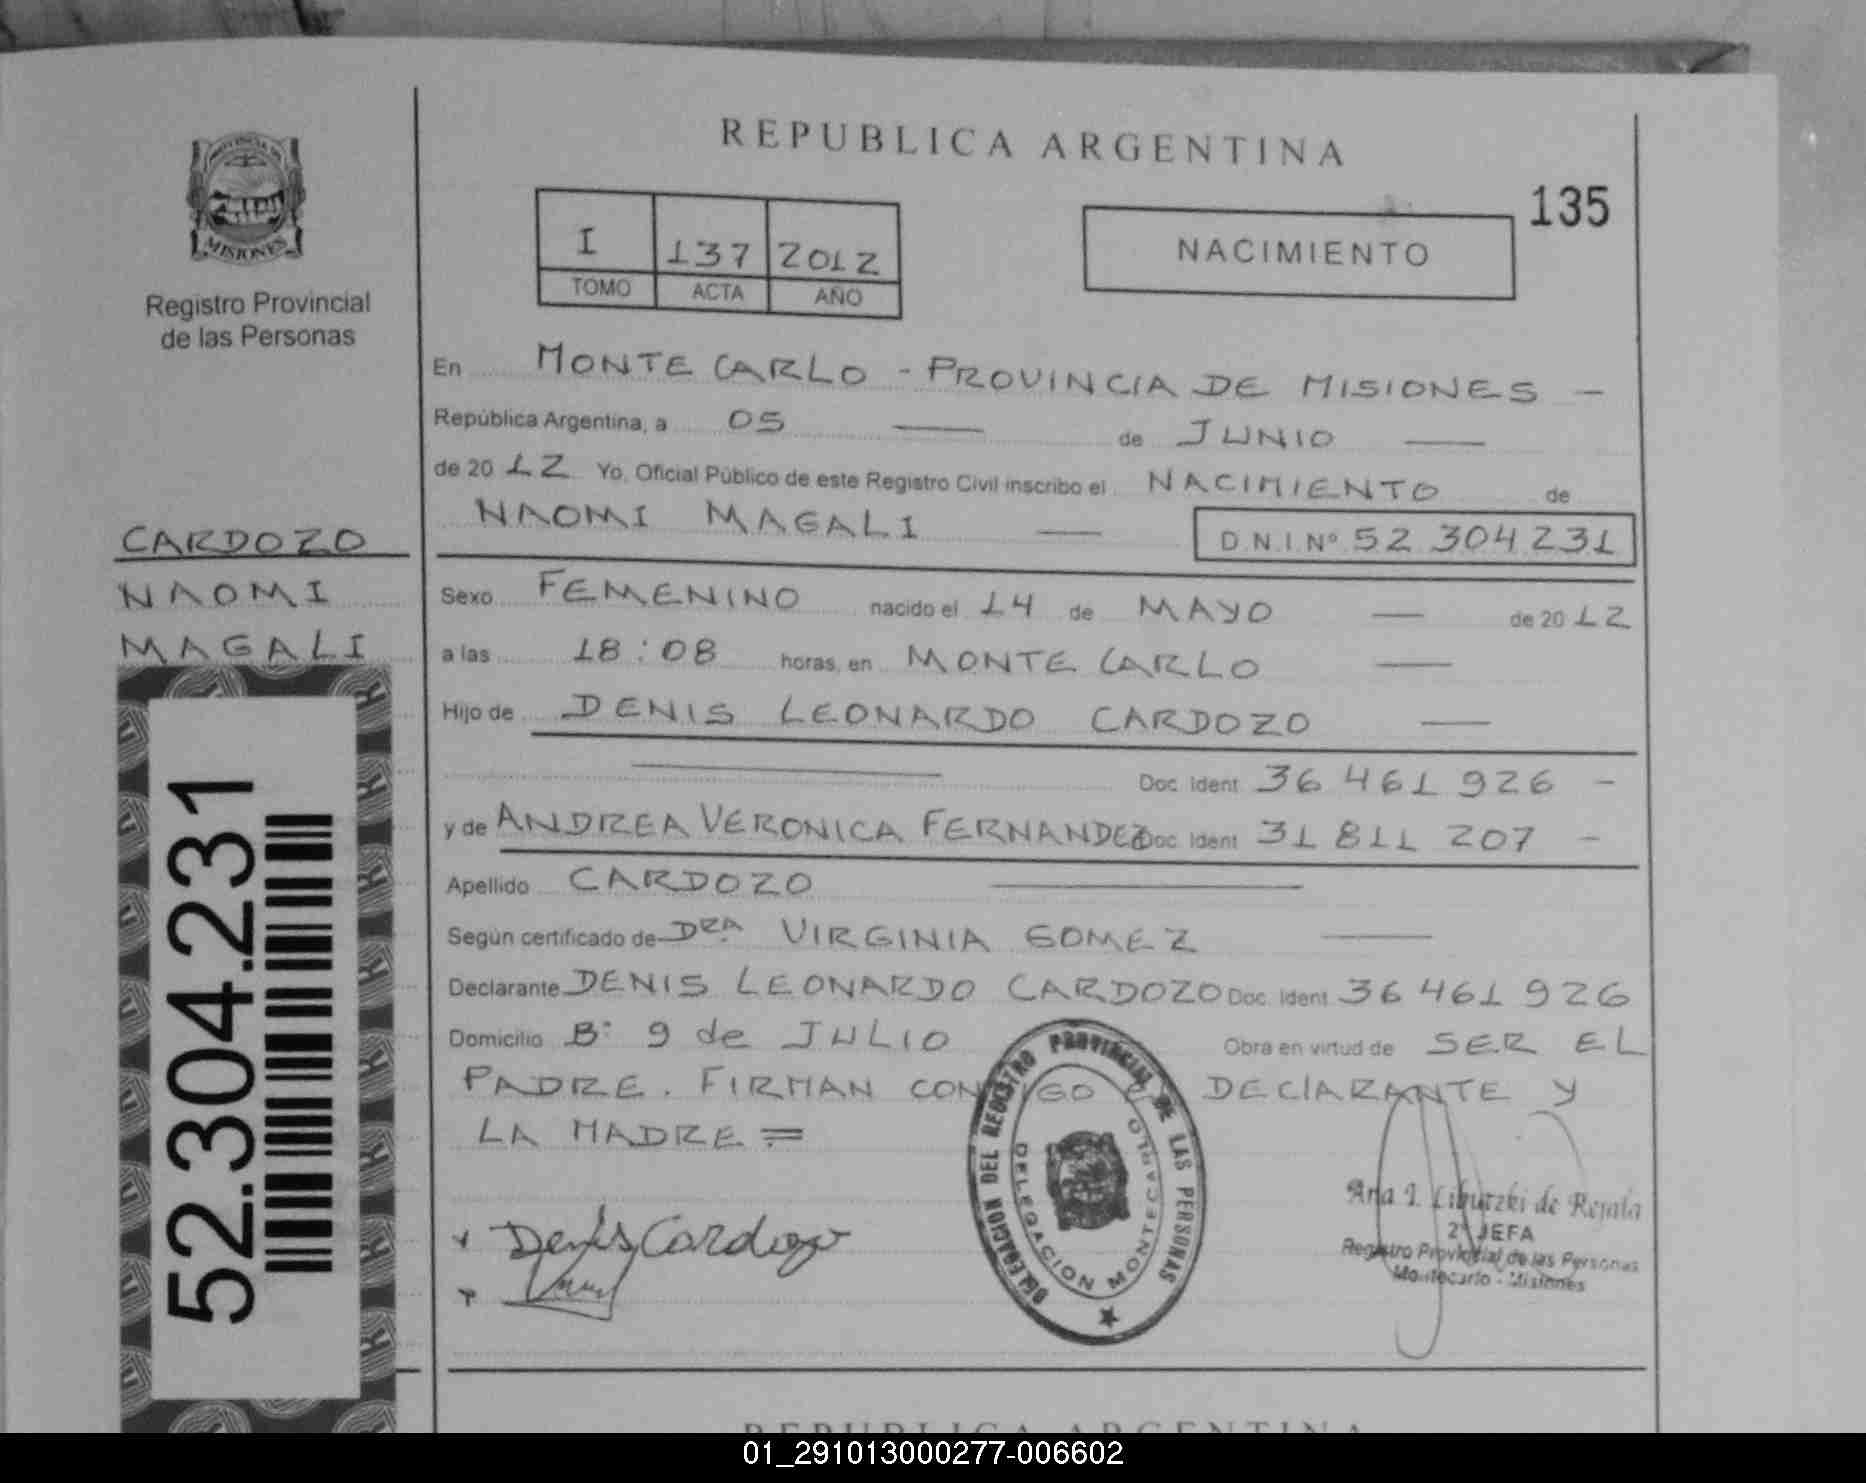 REPUBLICA ARGENTINA
135
PROVINCIA DE
MISIONES
Registro Provincial
de las Personas
I 137 2012
TOMO ACTA AÑO
NACIMIENTO
En MONTE CARLO - PROVINCIA DE MISIONES -
República Argentina, a 05 — de JUNIO —
de 2012 Yo, Oficial Público de este Registro Civil inscribo el NACIMIENTO de
NAOMI MAGALI — D.N.I.Nº 52 304 231
CARDOZO
NAOMI
MAGALI
52.304.231
Sexo FEMENINO nacido el 14 de MAYO — de 2012
a las 18:08 horas, en MONTE CARLO —
Hijo de DENIS LEONARDO CARDOZO —
— Doc. Ident. 36 461 926 -
y de ANDREA VERONICA FERNANDEZ Doc. Ident. 31 811 207 -
Apellido CARDOZO —
Según certificado de DRA. VIRGINIA GOMEZ —
Declarante DENIS LEONARDO CARDOZO Doc. Ident. 36 461 926
Domicilio Bº 9 de JULIO Obra en virtud de SER EL
PADRE. FIRMAN CONMIGO DECLARANTE Y
LA MADRE =
Denis Cardozo
DELEGACION DEL REGISTRO PROVINCIAL DE LAS PERSONAS
DELEGACION MONTECARLO
Ana I. de
2ª JEFA
Registro Provincial de las Personas
Montecarlo - Misiones
REPUBLICA ARGENTINA
01_291013000277-006602